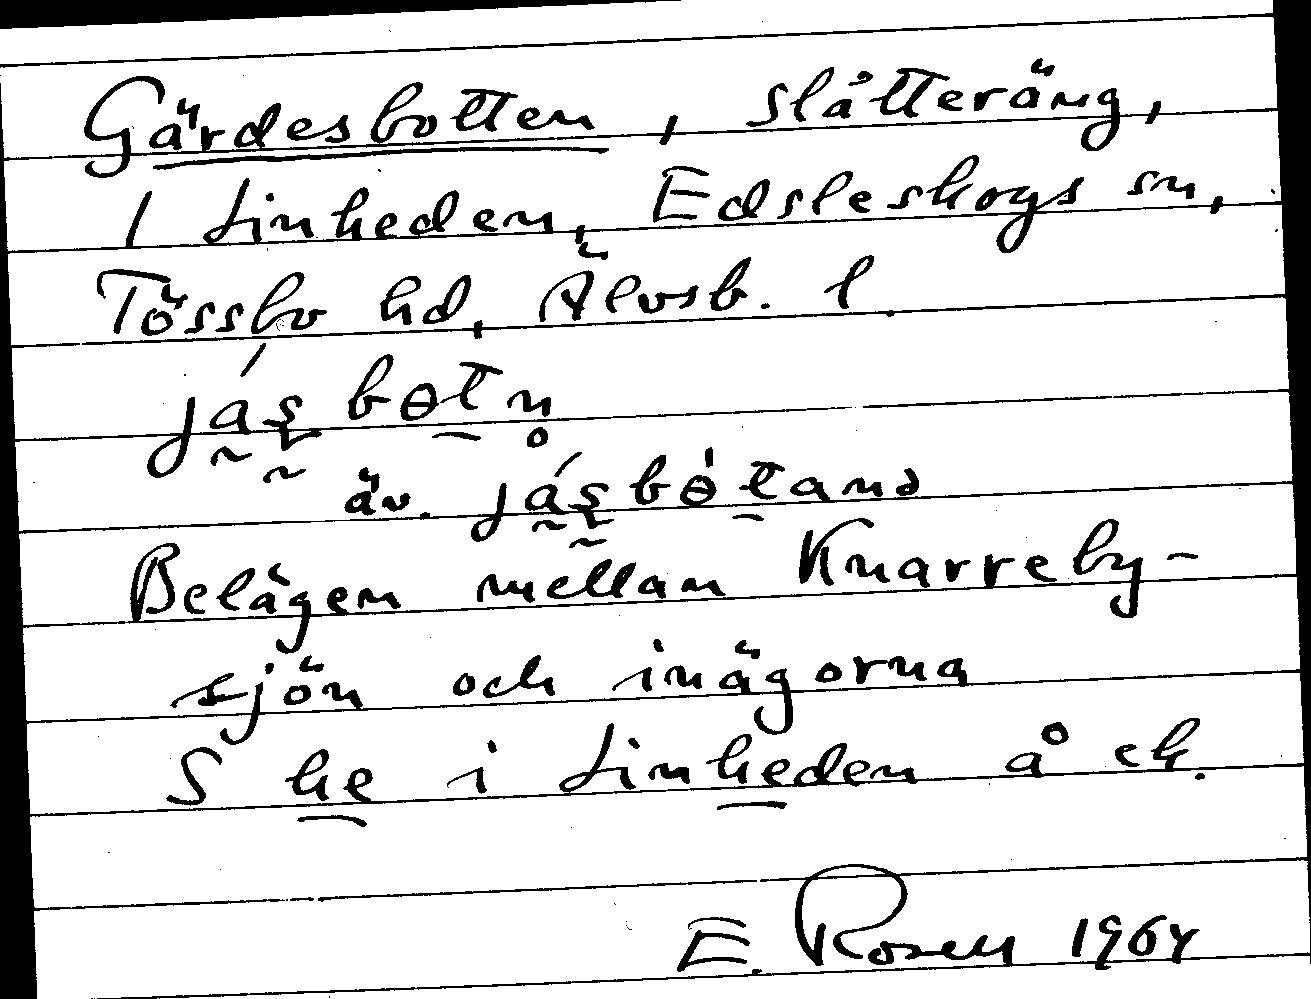 Gärdesbotten, slåtteräng,
1 Linheden, Edsleskogs sn,
Tössbo hd, Älvsb. l.
já̰ş̰ bɵtn̥
äv. já̰ş̰bɵ̍tanə
Belägen mellan Knarreby-
sjön och inägorna
S he i Linheden å ek.
E. Rosén 1964